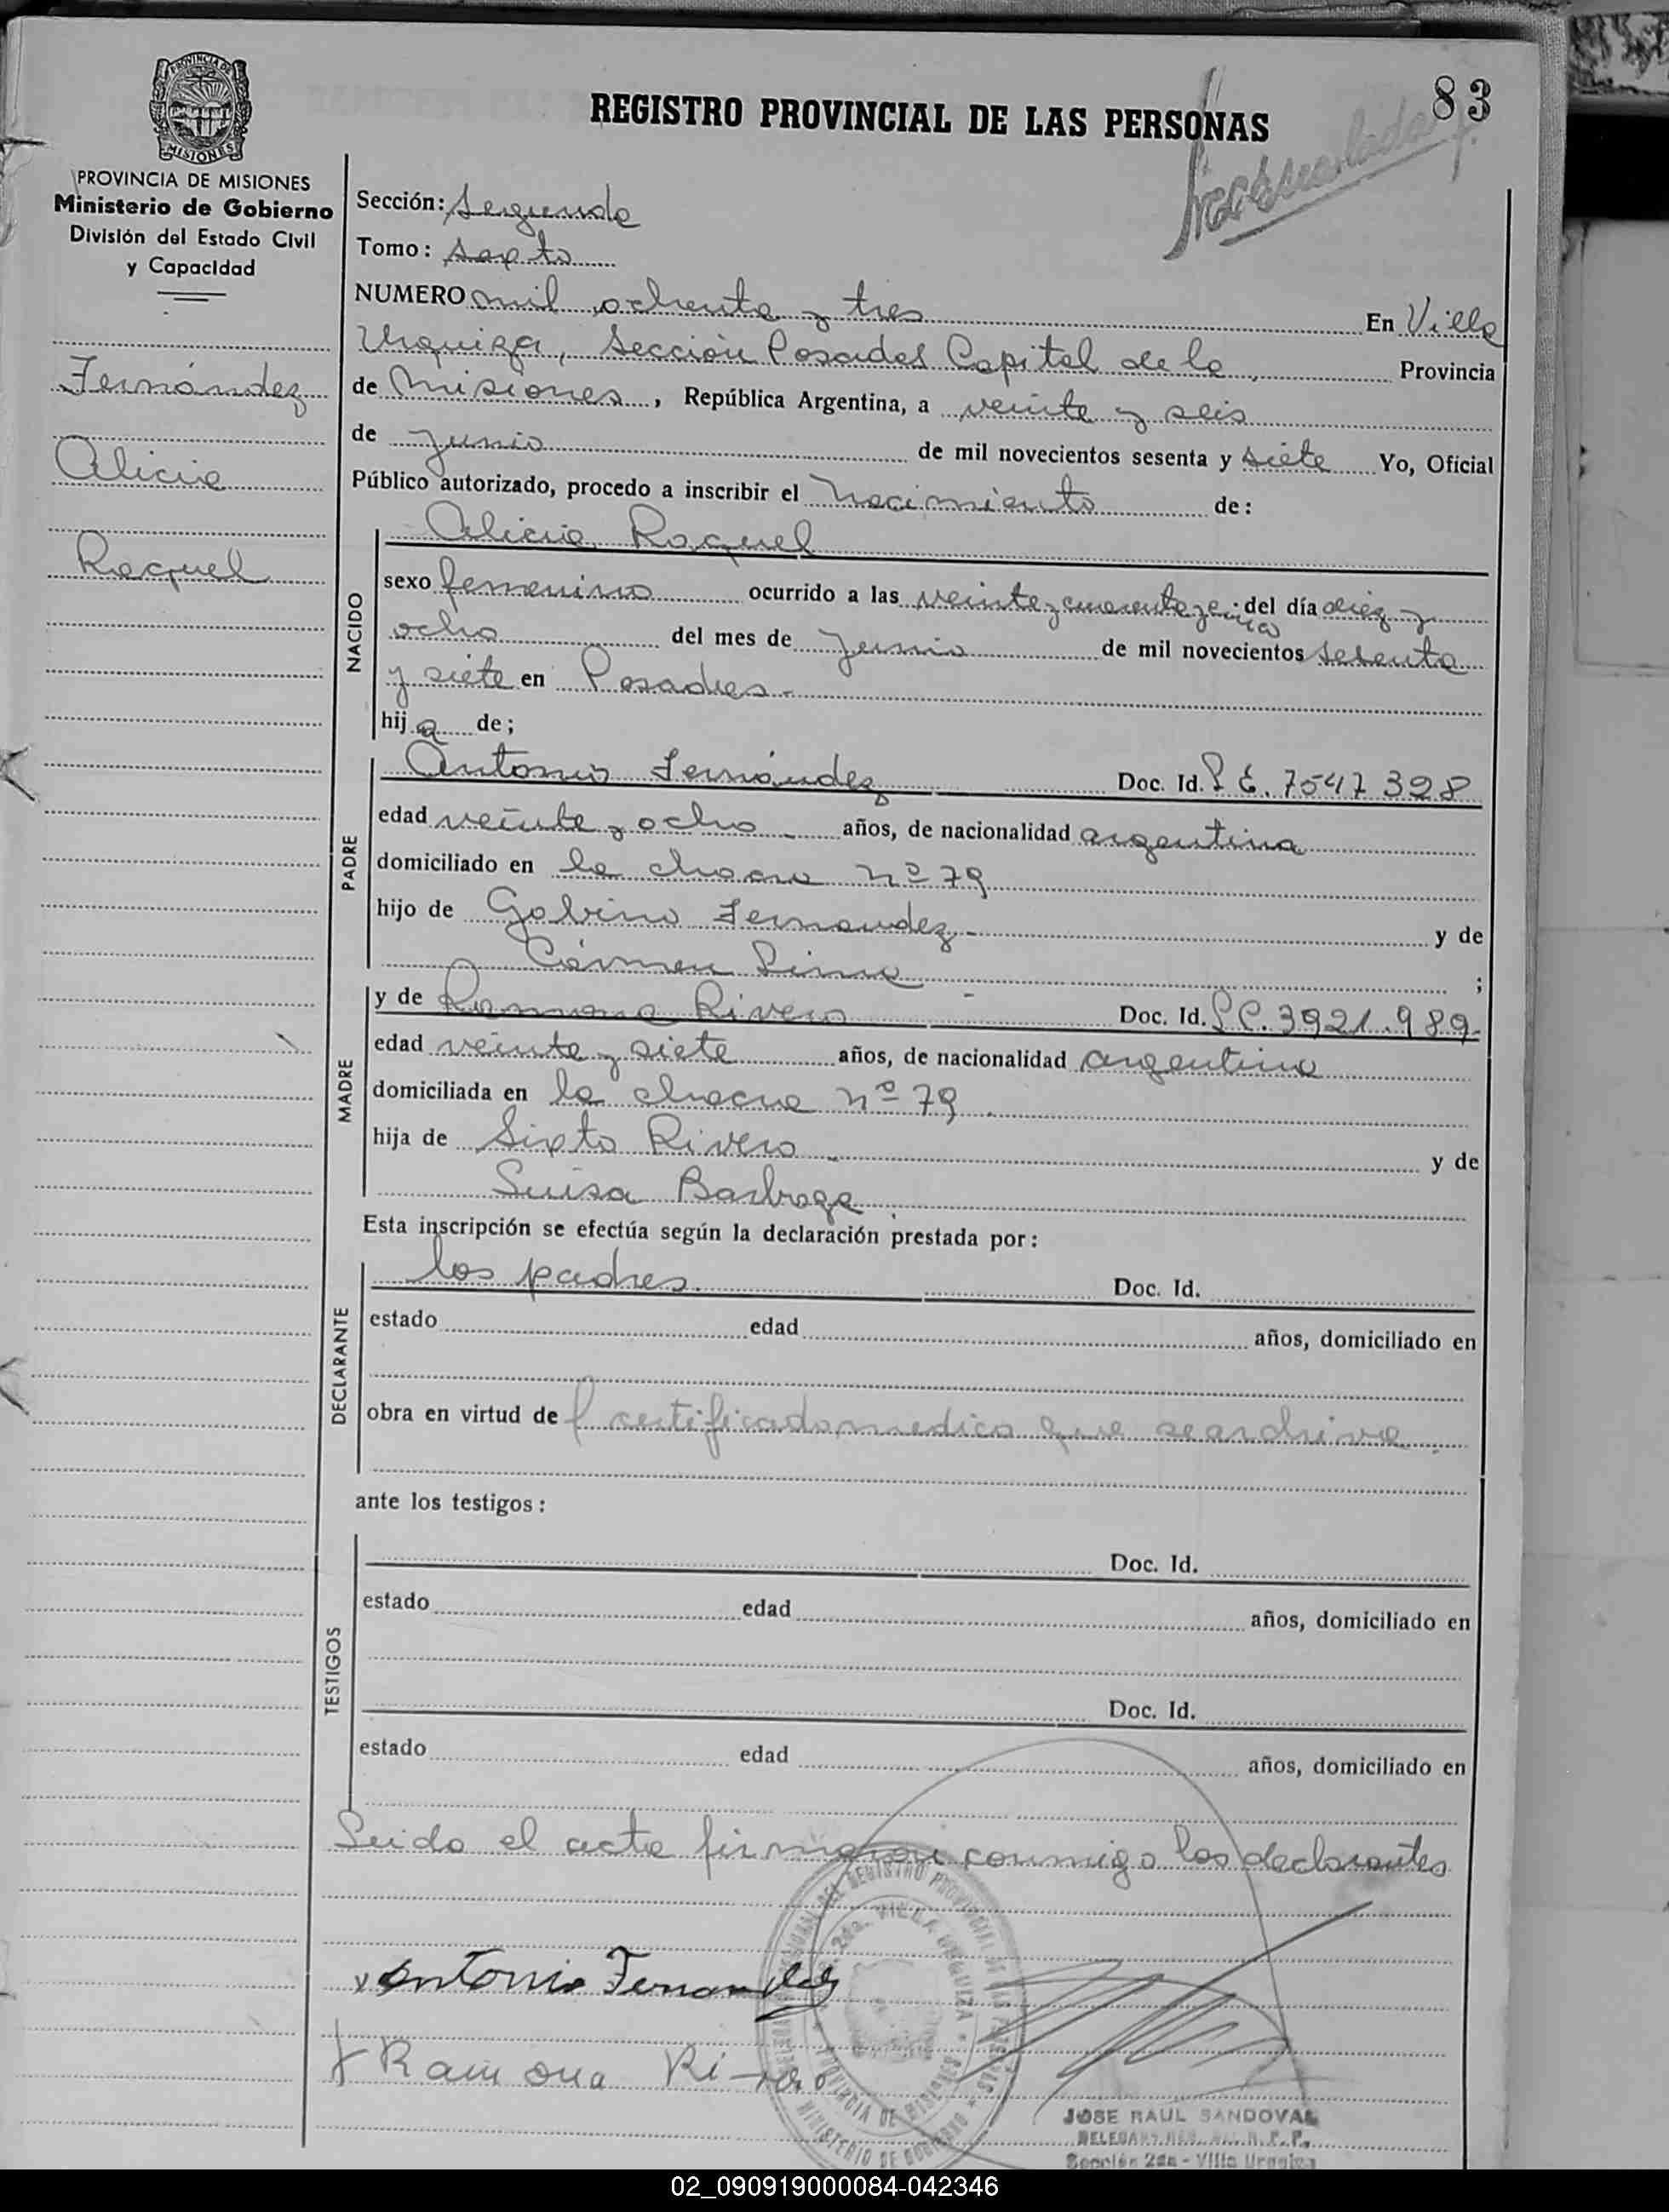 83
REGISTRO PROVINCIAL DE LAS PERSONAS
PROVINCIA DE MISIONES
MISIONES
PROVINCIA DE MISIONES
Ministerio de Gobierno
División del Estado Civil
y Capacidad
Fernández
Alicia
Raquel
Sección: Segunda
Tomo: Sexto
NUMERO mil ochenta y tres En Villa
Urquiza, Sección Posadas Capital de la Provincia
de Misiones, República Argentina, a veinte y seis
de Junio de mil novecientos sesenta y siete Yo, Oficial
Público autorizado, procedo a inscribir el Nacimiento de:
Alicia Raquel
NACIDO
sexo femenino ocurrido a las veinte y cuarenta y cinco del día diez y
ocho del mes de Junio de mil novecientos sesenta
y siete en Posadas.-
hija de;
PADRE
Antonio Fernández Doc. Id. L E. 7547328
edad veinte y ocho - años, de nacionalidad argentina
domiciliado en la chacra nº 79
hijo de Gabino Fernandez.- y de
Cármen Lima ;
MADRE
y de Ramona Rivero - Doc. Id. L C. 3921.989.
edad veinte y siete años, de nacionalidad argentina
domiciliada en la chacra nº 79.
hija de Sixto Rivero - y de
Luisa Barboza.
Esta inscripción se efectúa según la declaración prestada por:
DECLARANTE
los padres. Doc. Id.
estado edad años, domiciliado en
obra en virtud de l certificado medico que se archiva.
ante los testigos:
TESTIGOS
Doc. Id.
estado edad años, domiciliado en
Doc. Id.
estado edad años, domiciliado en
Leida el acta firmaron conmigo los declarantes
x Antonio Fernandez
x Ramona Rivero
JOSE RAUL SANDOVAL
Sección 2da - Villa Urquiza
02_090919000084-042346